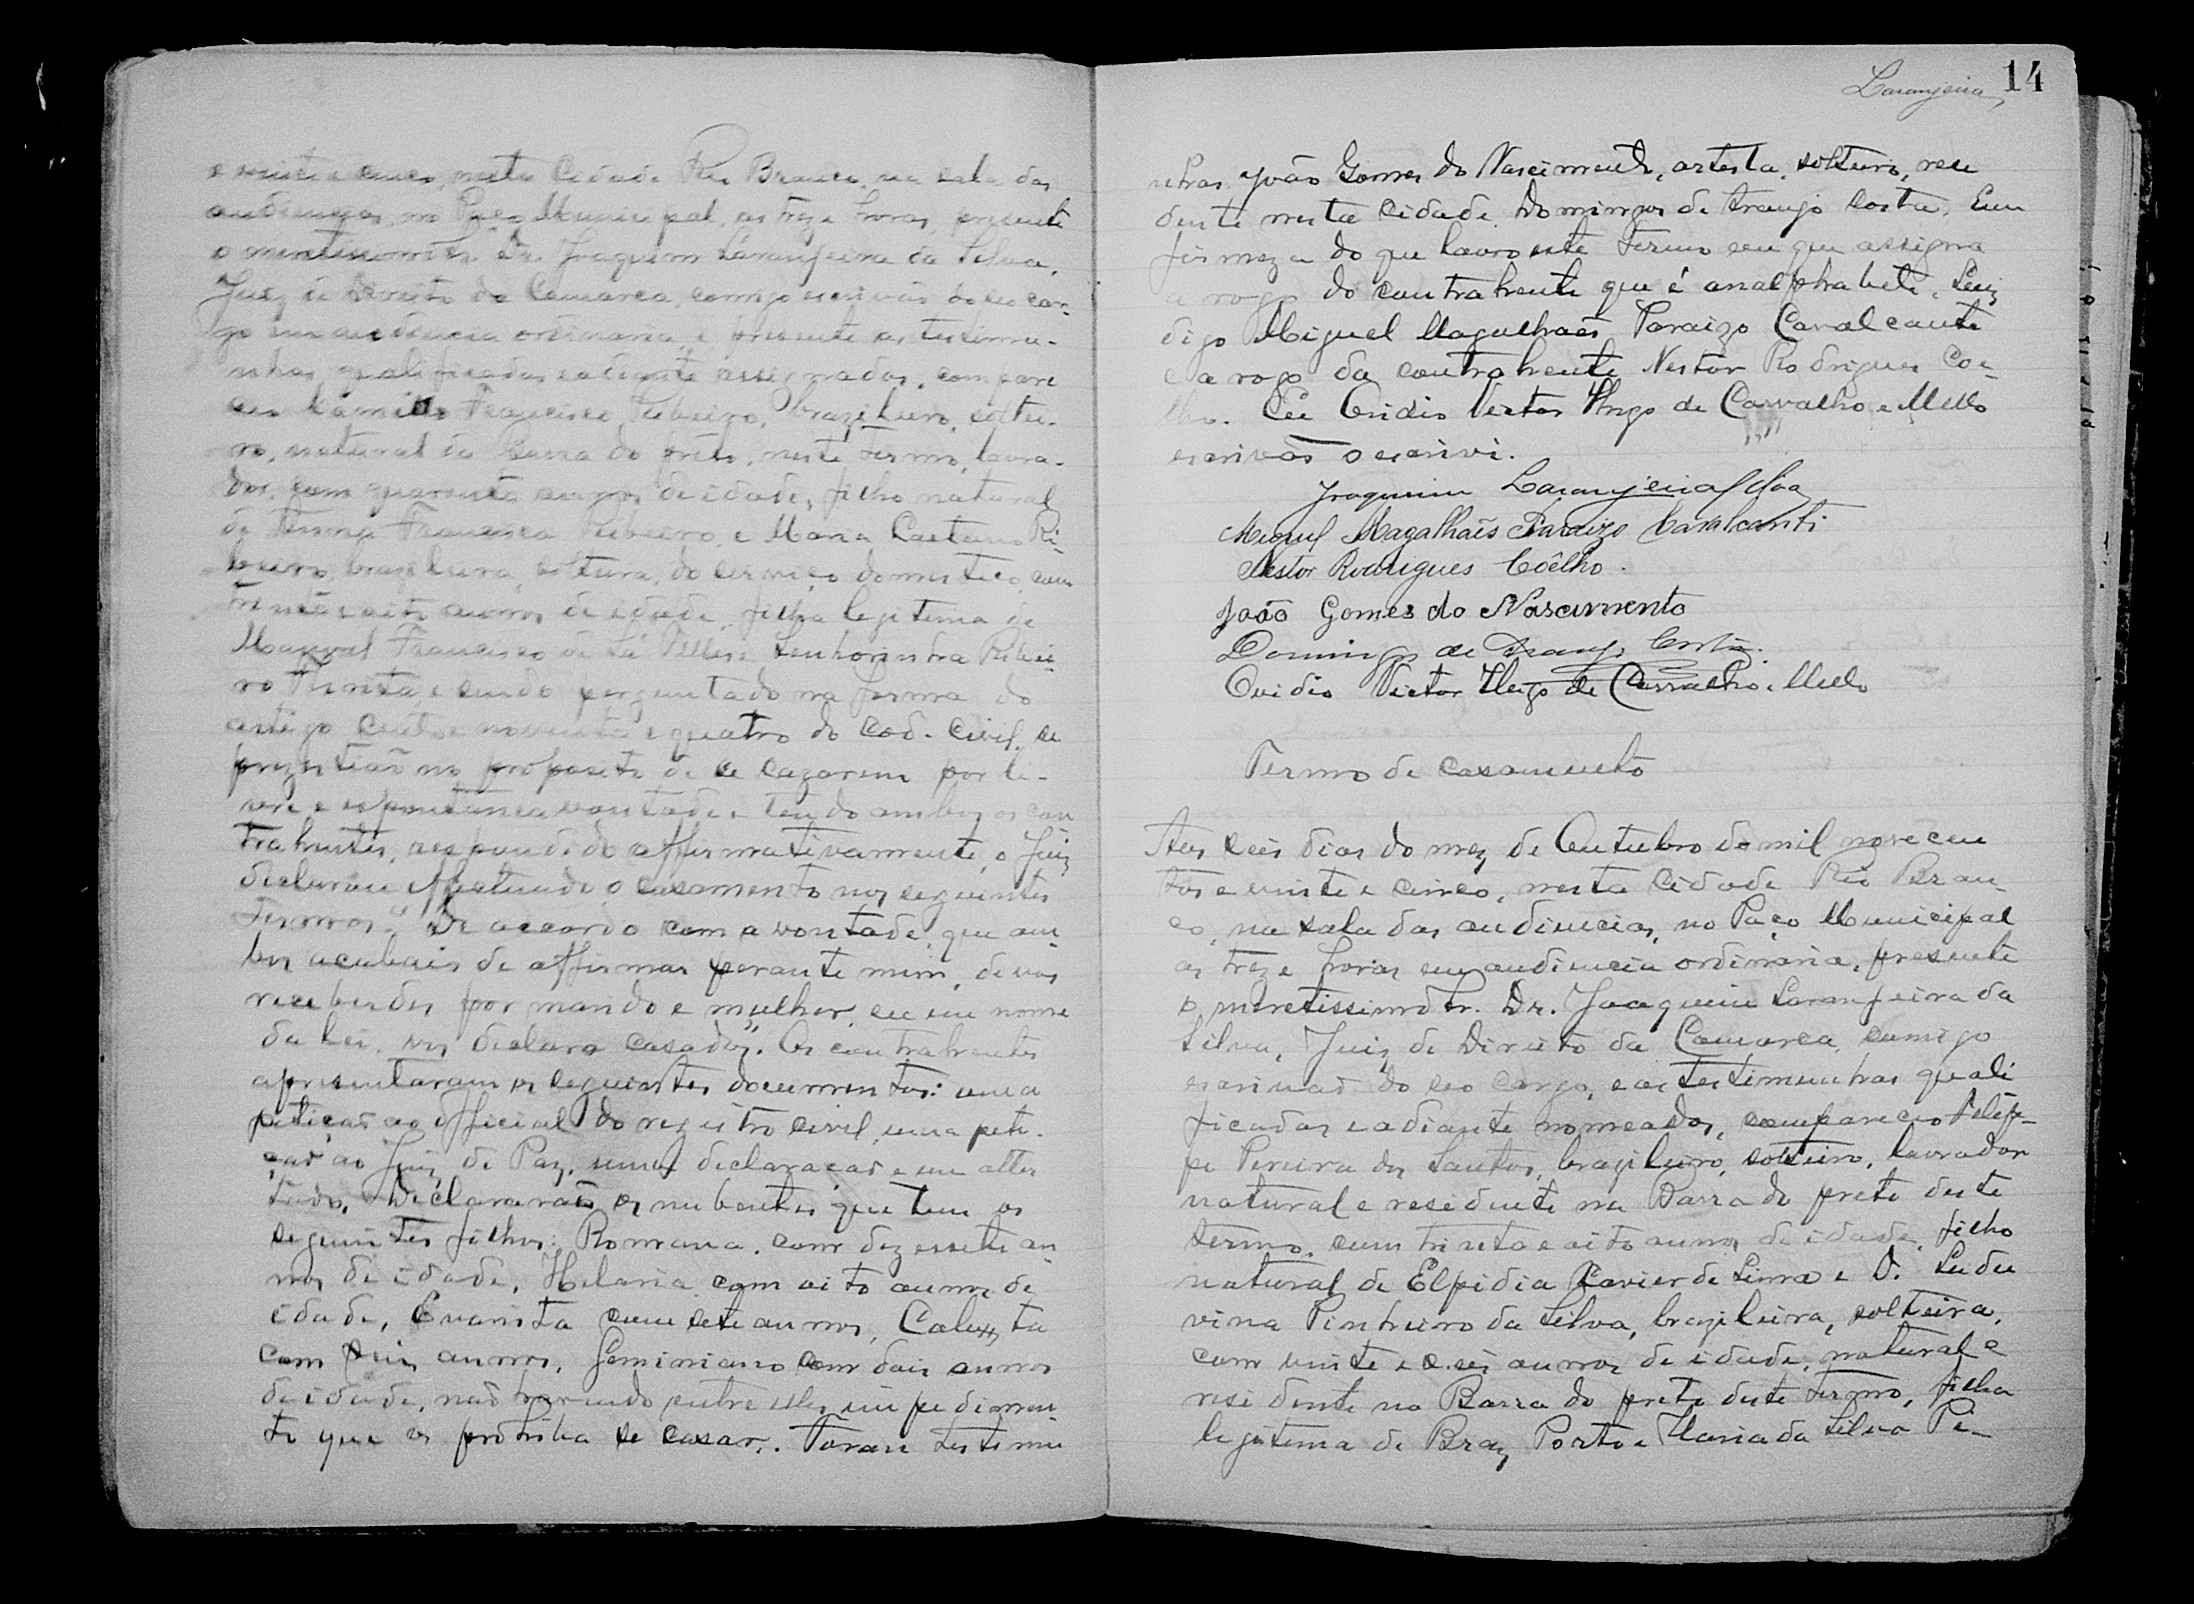 e vinte e cinco, nesta Cidade Rio Branco, na sala das
audiencias, no Paço Municipal, as treze horas, presente
o meretissimo Sr. Dr. Joaquim Laranjeira da Silva,
Juiz de Direito da Comarca, comigo escrivão do seo car-
go em audiencia ordinaria, e presente as testemu-
nhas qualificadas e adiante assignadas, compare
ceu Francisco Ribeiro, brazileiro, soltei-
ro, natural da Barra do preto, neste termo, lavra-
dor, com quarenta annos de idade, filho natural
de Anna Francisca Ribeiro, e Maria Caetano Ri-
beiro, brazileira, solteira, do serviço domestico, com
trinta e oito annos de idade, filha legitima de
Manoel Francisco de Sá Telles e Senhorinha Ribei-
ro e sendo perguntado na forma do
artigo cento e noventa e quatro do Cod. Civil, se
prezistião no proposito de se cazarem por li-
vre e espontanea vontade, e tendo ambos os con
trahentes, respondido affirmativamente, o Juiz
declarou effectuado o casamento nos seguintes
termos: "De accordo com a vontade, que am-
bos acabais de affirmar perante mim, de vos
receberdes por marido e mulher, eu em nome
da Lei, vos declaro casados". Os contrahentes
apresentaram os seguintes documentos: uma
petição ao official do registro civil, uma peti-
ção ao Juiz de Paz, uma declaração e um attes
tado. Declararão os nubentes que tem os
seguintes filhos: Romana, com dezessete an
nos de idade, Helaria com oito annos de
idade, Evarista com sete annos, Calixta
com seis annos, Geminiano com dois annos
de idade, não havendo entre elles impedimen-
to que os prohiba se casar. Foram testemu
Laranjeira 14
nhas João Gomes do Nascimento, artista, solteiro, resi
dente nesta cidade Domingos de Araujo Costa. Em
firmeza do que lavro este termo em que assigna
a rogo do contrahente que é analphabeto, Luiz
digo Miguel Magalhaes Paraizo Cavalcante
e a rogo da contrahente Nestor Rodrigues Coe-
lho. Eu Ovidio Victor Hugo de Carvalho e Mello
escrivão o escrivi.
Joaquim Laranjeira Silva
Miguel Magalhaês Paraizo Cavalcanti
Nestor Rodrigues Coêlho.
João Gomes do Nascimento
Domingos de Araujo Costa.
Ovidio Victor Hugo de Carvalho e Mello
Termo de casamento
Aos seis dias do mez de Outubro de mil novecen
tos e vinte e cinco, nesta Cidade Rio Bran-
co, na sala das audiencias, no Paço Municipal
as treze horas em audiencia ordinaria, presente
o meretissimo Sr. Dr. Joaquim Laranjeira da
Silva, Juiz de Direito da Comarca, comigo
escrivão do seo cargo, e as testemunhas quali
ficadas e adiante nomeadas, compareceo Felip-
pe Pereira dos Santos, brazileiro, solteiro, lavrador
natural e residente na Barra do preto deste
termo, com trinta e oito annos de idade, filho
natural de Elpidia Xavier de Lima e D. Ludu
vina Pinheiro da Silva, brazileira, solteira,
com vinte e seis annos de idade, natural e
residente na Barra do preto deste termo, filha
legitima de Braz Porto e Maria da Silva Pi-